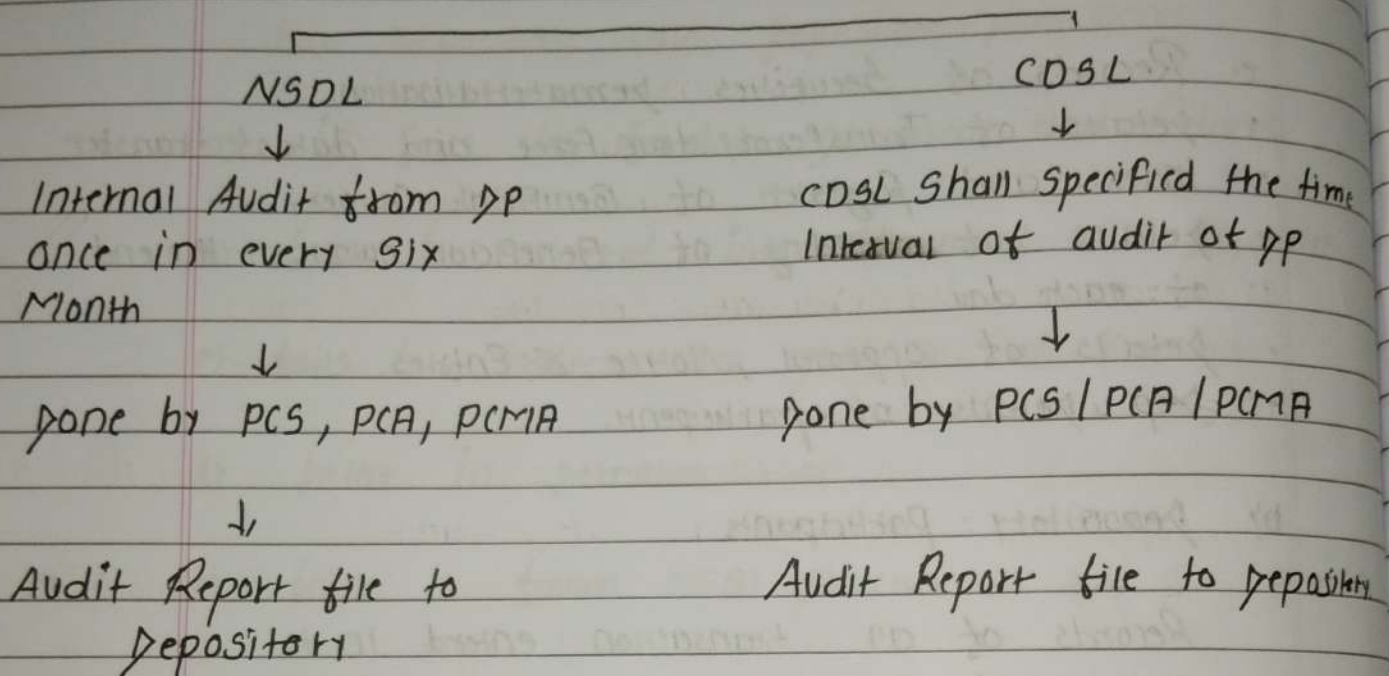 NSDL
↓
Internal Audit from DP
once in every six
Month
↓
Done by PCS, PCA, PCMA
↓
Audit Report file to
Depository
CDSL
↓
CDSL Shall Specified the time
Interval of audit of DP
↓
Done by PCS / PCA / PCMA
Audit Report file to Depository